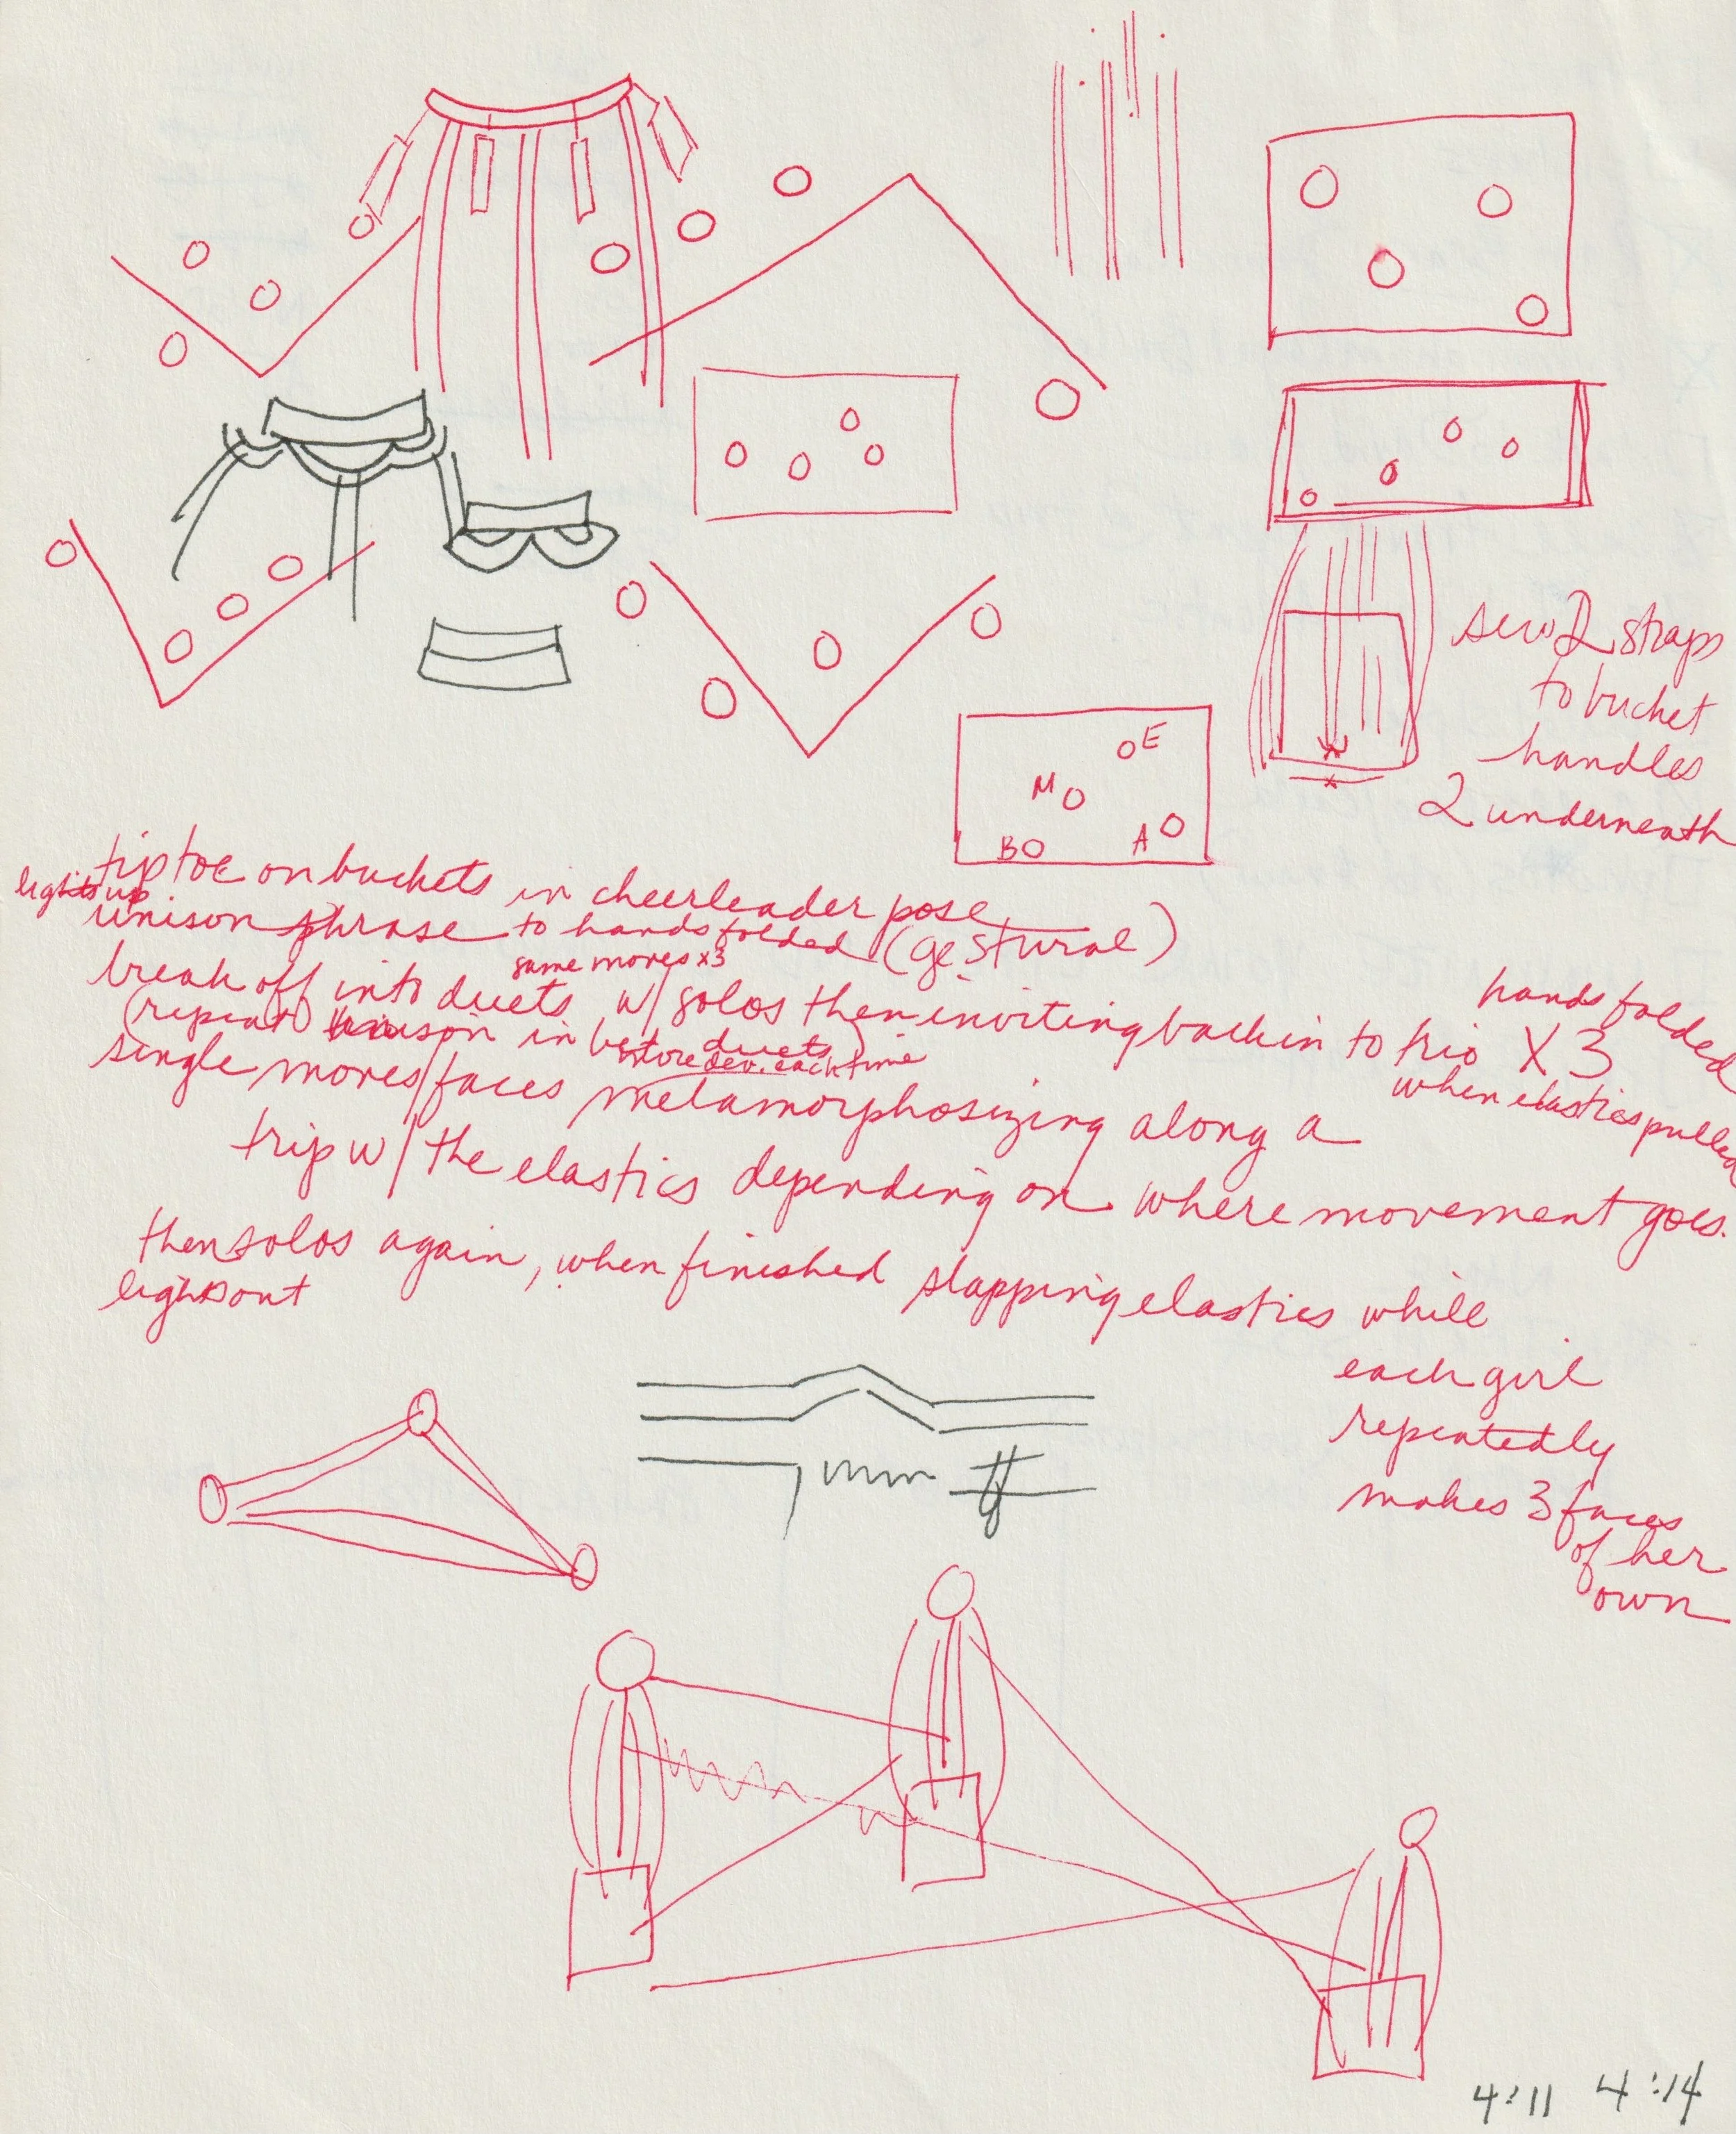 sew 2 straps
to bucket
handles
2 underneath
E
M
B
A
tiptoe on buckets in cheerleader pose
lights up
unison phrase to hands folded (gestural)
same moves x3
break off into duets w/ solos then inviting back in to trio X 3
hands folded
when elastics pulled
(repeat unison in bet. duets)
more dev. each time
single moves/faces metamorphosizing along a
trip w/ the elastics depending on where movement goes.
then solos again, when finished slapping elastics while
lights out
each girl
repeatedly
makes 3 faces
of her
own
4:11 4:14